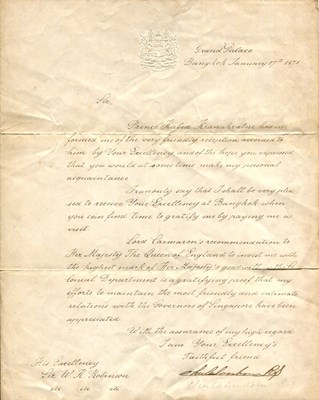 Grand Palace
Bangkok January 17th 187
Sir,
Prince has in
formed me of the very friendly reception accorded to
him by Your Excellency and of the hope you expressed
that you would at some time make my personal
acquaintance.
I can only say that I shall be very plea
sed to receive Your Excellency at Bangkok when
you can find time to gratify me by paying me a
visit.
Lord recommendation to
Her Majesty The Queen of England to invest me with
the highest mark of Her Majesty's goodwill in the
Department is a gratifying proof that my
efforts to maintain the most friendly and intimate
relations with the Governors of Singapore have been
appreciated.
With the assurance of my high regard
I am Your Excellency's
Faithful friend
His Excellency
Sir W. Robinson